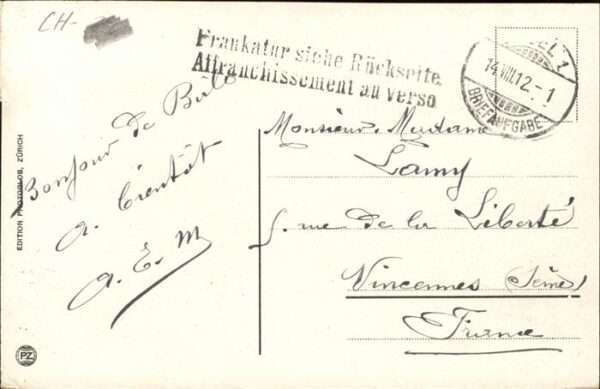 CH-
Frankatur siehe Rückseite
Affranchissement au verso
14.VIII.12.-1
BRIEFAUFGABE
Bonjour de
A bientôt
A. E. M
Monsieur Madame
Lamy
5. rue de la Liberté
Vincennes (Seine)
France
EDITION PHOTOGLOB, ZÜRICH
PZ